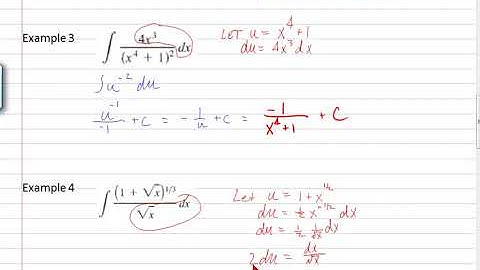 Example 3 ∫ 4x³/(x⁴ + 1)² dx LET u = x⁴+1
du = 4x³dx
∫u⁻² du
u⁻¹/-1 + C = -1/u + C = -1/x⁴+1 + C
Example 4 ∫ (1 + √x)^1/3/√x dx Let u = 1+x^1/2
du = ½x^-1/2 dx
du = ½ 1/√x dx
2du = dx/√x